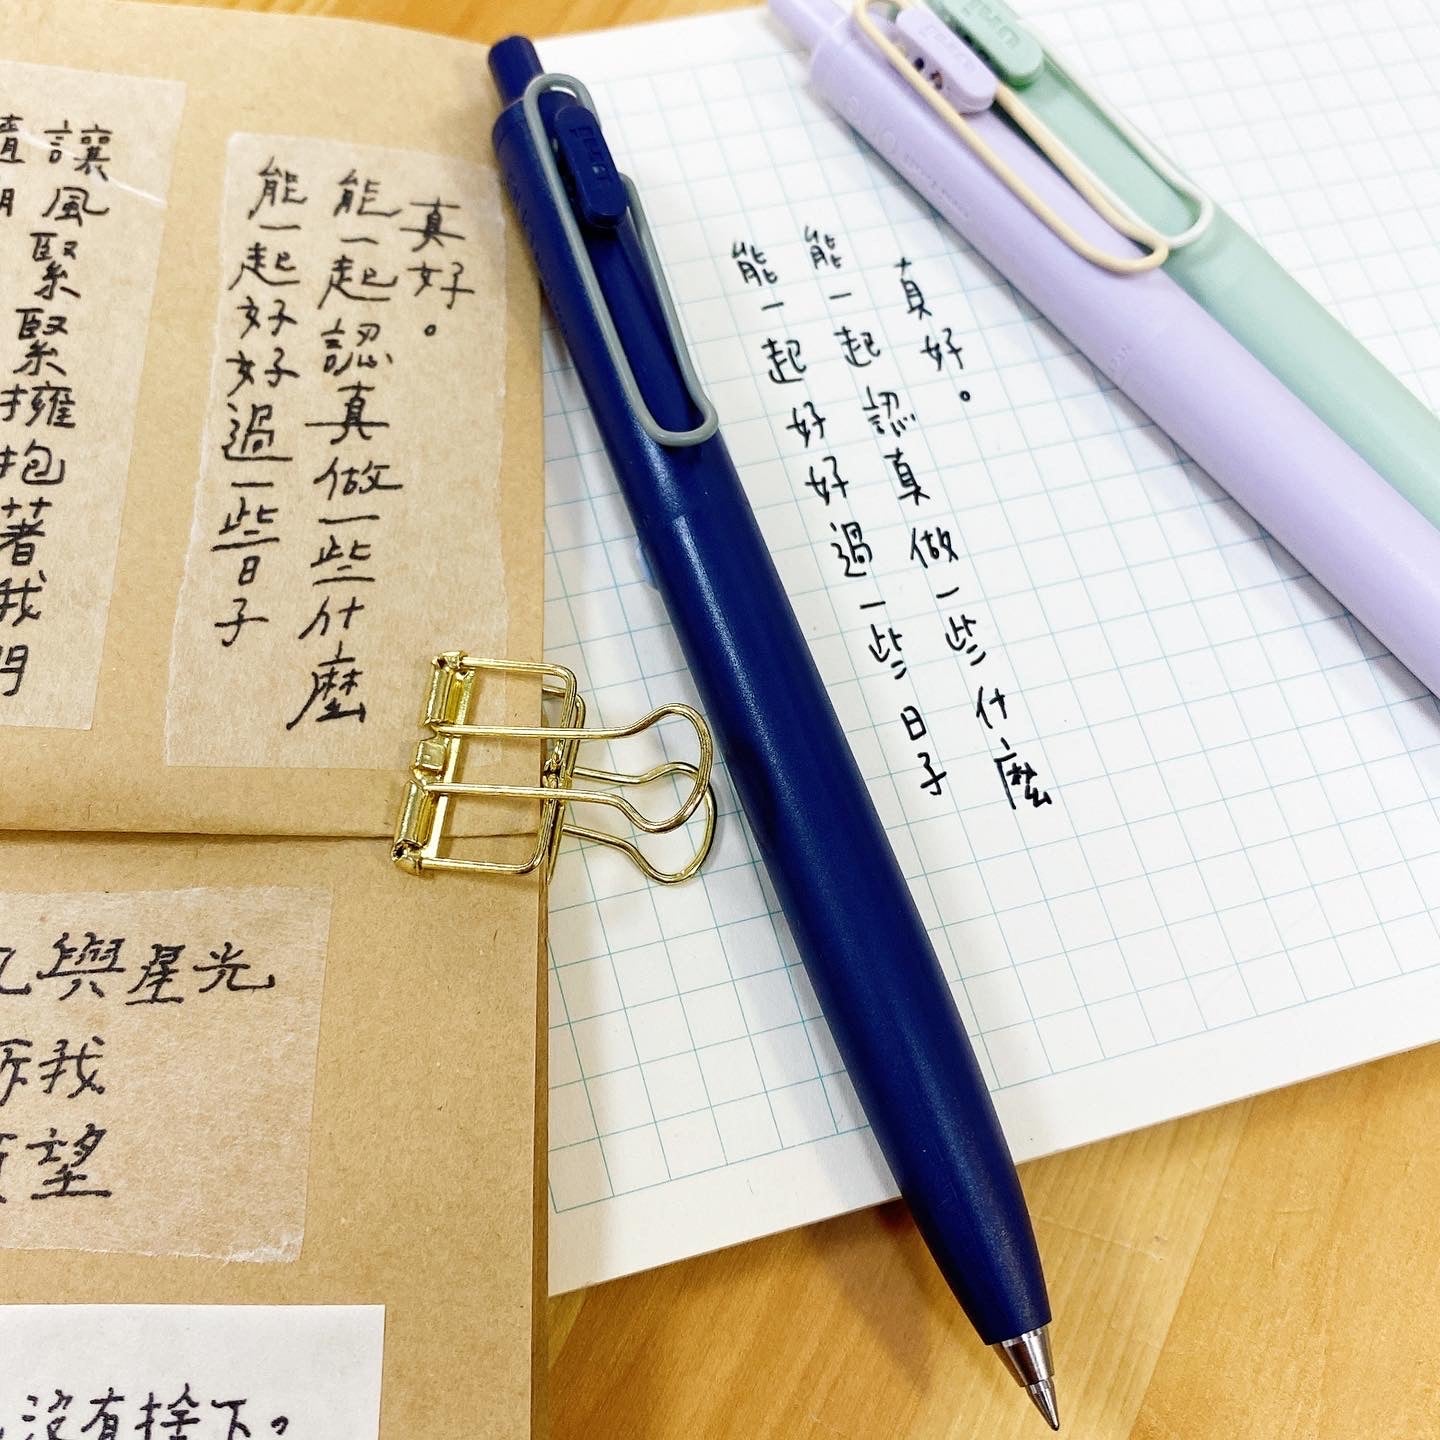 真好。
能一起認真做一些什麼
能一起好好過一些日子
真好。
能一起認真做一些什麼
能一起好好過一些日子
讓風緊緊擁抱著我們
與星光
訴我
望
沒有捨下。
uni